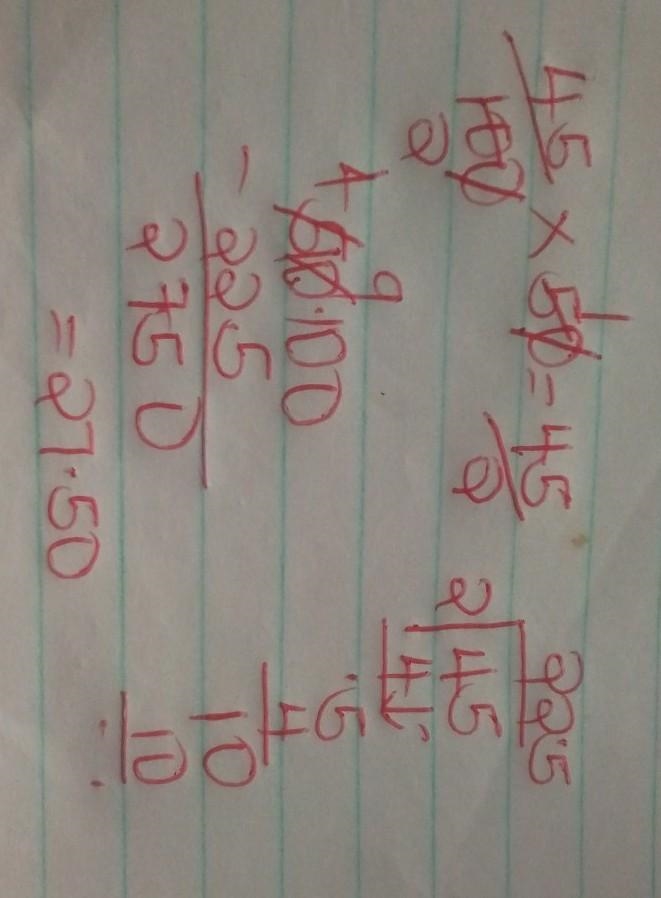 45/100 × 50 = 45/2
2 1
22.5
2 | 45
4↓
5
4
10
10
4 9
50.100
- 22 5
27 5 0
= 27.50